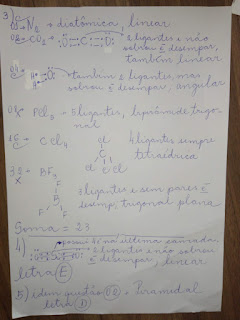 3) 01 → N₂ → diatômica, linear
02 → CO₂ → O C O 2 ligantes e não
sobrou e⁻ desempar,
também linear
04 → também 2 ligantes, mas
sobrou e⁻ desempar, angular
08 → PCl₅ → 5 ligantes, bipirâmide trigo
nal
16 → C Cl₄ 4 ligantes sempre
tetraédrica
Cl
C
Cl Cl Cl
32 → BF₃
F
B
F F
3 ligantes e sem pares e⁻
desemp, trigonal plana
Soma = 23
4) O S O
2 ligantes e não sobrou
e⁻ desempar, linear
letra E
5) idem questão 02 → Piramedal
letra D